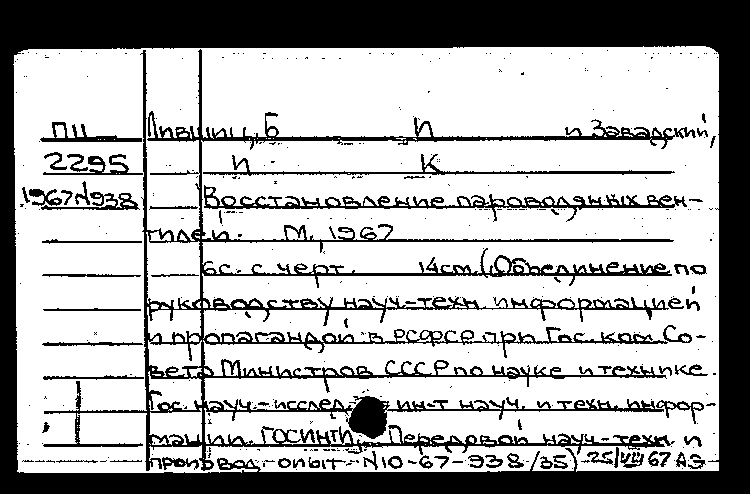 П11 Лившиц, Б И и Завадский,
2295 И К
1967 N938 Восстановление пароводяных вен-
тилей. М., 1967
6с. с черт. 14см. (Объединение по
руководству науч-техн. информацией
и пропагандой в РСФСР при Гос. ком. Со-
вета Министров СССР по науке и технике.
Гос. науч.-исслед. ин-т науч. и техн. инфор-
мации. ГОСИНТИ. Передовой науч.-техн. и
производ. опыт. N10-67-938/35) 25/VIII 67 АЭ